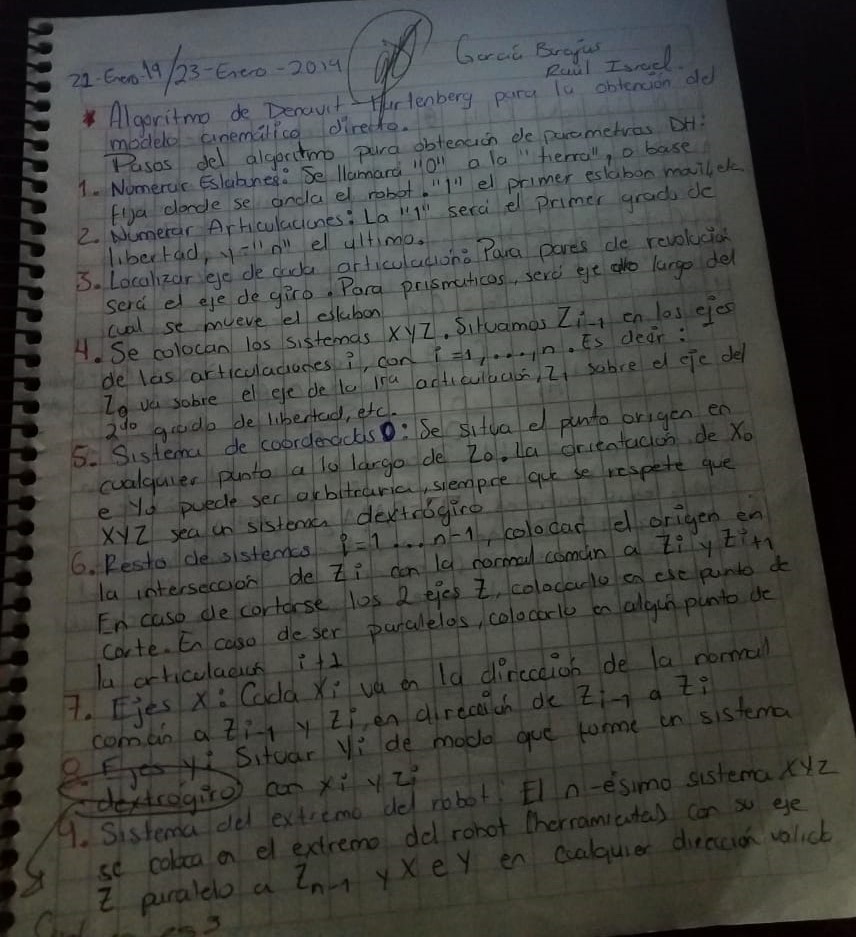 García Barajas
Raúl Israel.
22-Enero-19/23-Enero-2019
* Algoritmo de Denavit-Hartenberg para la obtención del
modelo cinemático directo.
Pasos del algoritmo para obtención de parametros DH:
1. Numerar Eslabones: Se llamará "0" a la "tierra", o base
fija donde se ancla el robot. "1" el primer eslabon
2. Numerar Articulaciones: La "1" será el primer grado de
libertad, y "n" el ultimo.
3. Localizar eje de cada articulación: Para pares de revolución
será el eje de giro. Para prismaticos, será eje largo del
cual se mueve el eslabon
4. Se colocan los sistemas XYZ. Situamos Zi-1 en los ejes
de las articulaciones i, con i=1,....,n. Es decir:
Z0 va sobre el eje de la 1ra articulación, Z1 sobre el eje del
2do grado de libertad, etc.
5. Sistema de coordenadas 0: Se situa el punto origen en
cualquier punto a lo largo de Z0. La orientación de X0
e Y0 puede ser arbitraria, siempre que se respete que
XYZ sea un sistema dextrógiro
6. Resto de sistemas i=1...n-1, colocar el origen en
la intersección de Zi con la normal común a Zi y Zi+1
En caso de cortarse los 2 ejes Z, colocarlo en ese punto de
corte. En caso de ser paralelos, colocarlo en algún punto de
la articulación i+1
7. Ejes X: Cada Xi va en la dirección de la normal
común a Zi-1 y Zi, en dirección de Zi-1 a Zi
8. Ejes Y: Situar Yi de modo que forme un sistema
dextrógiro con Xi y Zi
9. Sistema del extremo del robot: El n-ésimo sistema XYZ
se coloca en el extremo del robot (herramienta) con su eje
Z paralelo a Zn-1 y X e Y en cualquier dirección valida